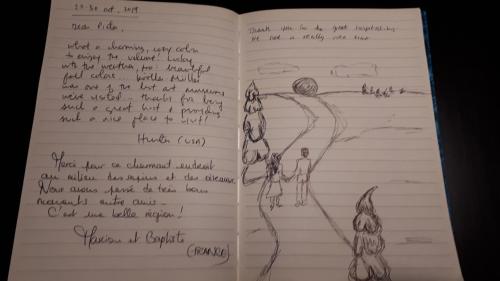 29-30 oct. 2019
Dear Pieter,
what a charming, cozy cabin
to enjoy the
with the weather, too: beautiful
fall colors. Kröller Müller
was one of the best art museums
we've visited - thanks for being
such a great host & providing
such a nice place to visit!
Hunter (USA)
Merci pour ce charmant endroit
au milieu des sapins et des oiseaux.
Nous avons passé de très bons
moments entre amis.
C'est une belle région!
Marion et Baptiste
(FRANCE)
Thank you for the great hospitality
We had a really nice time